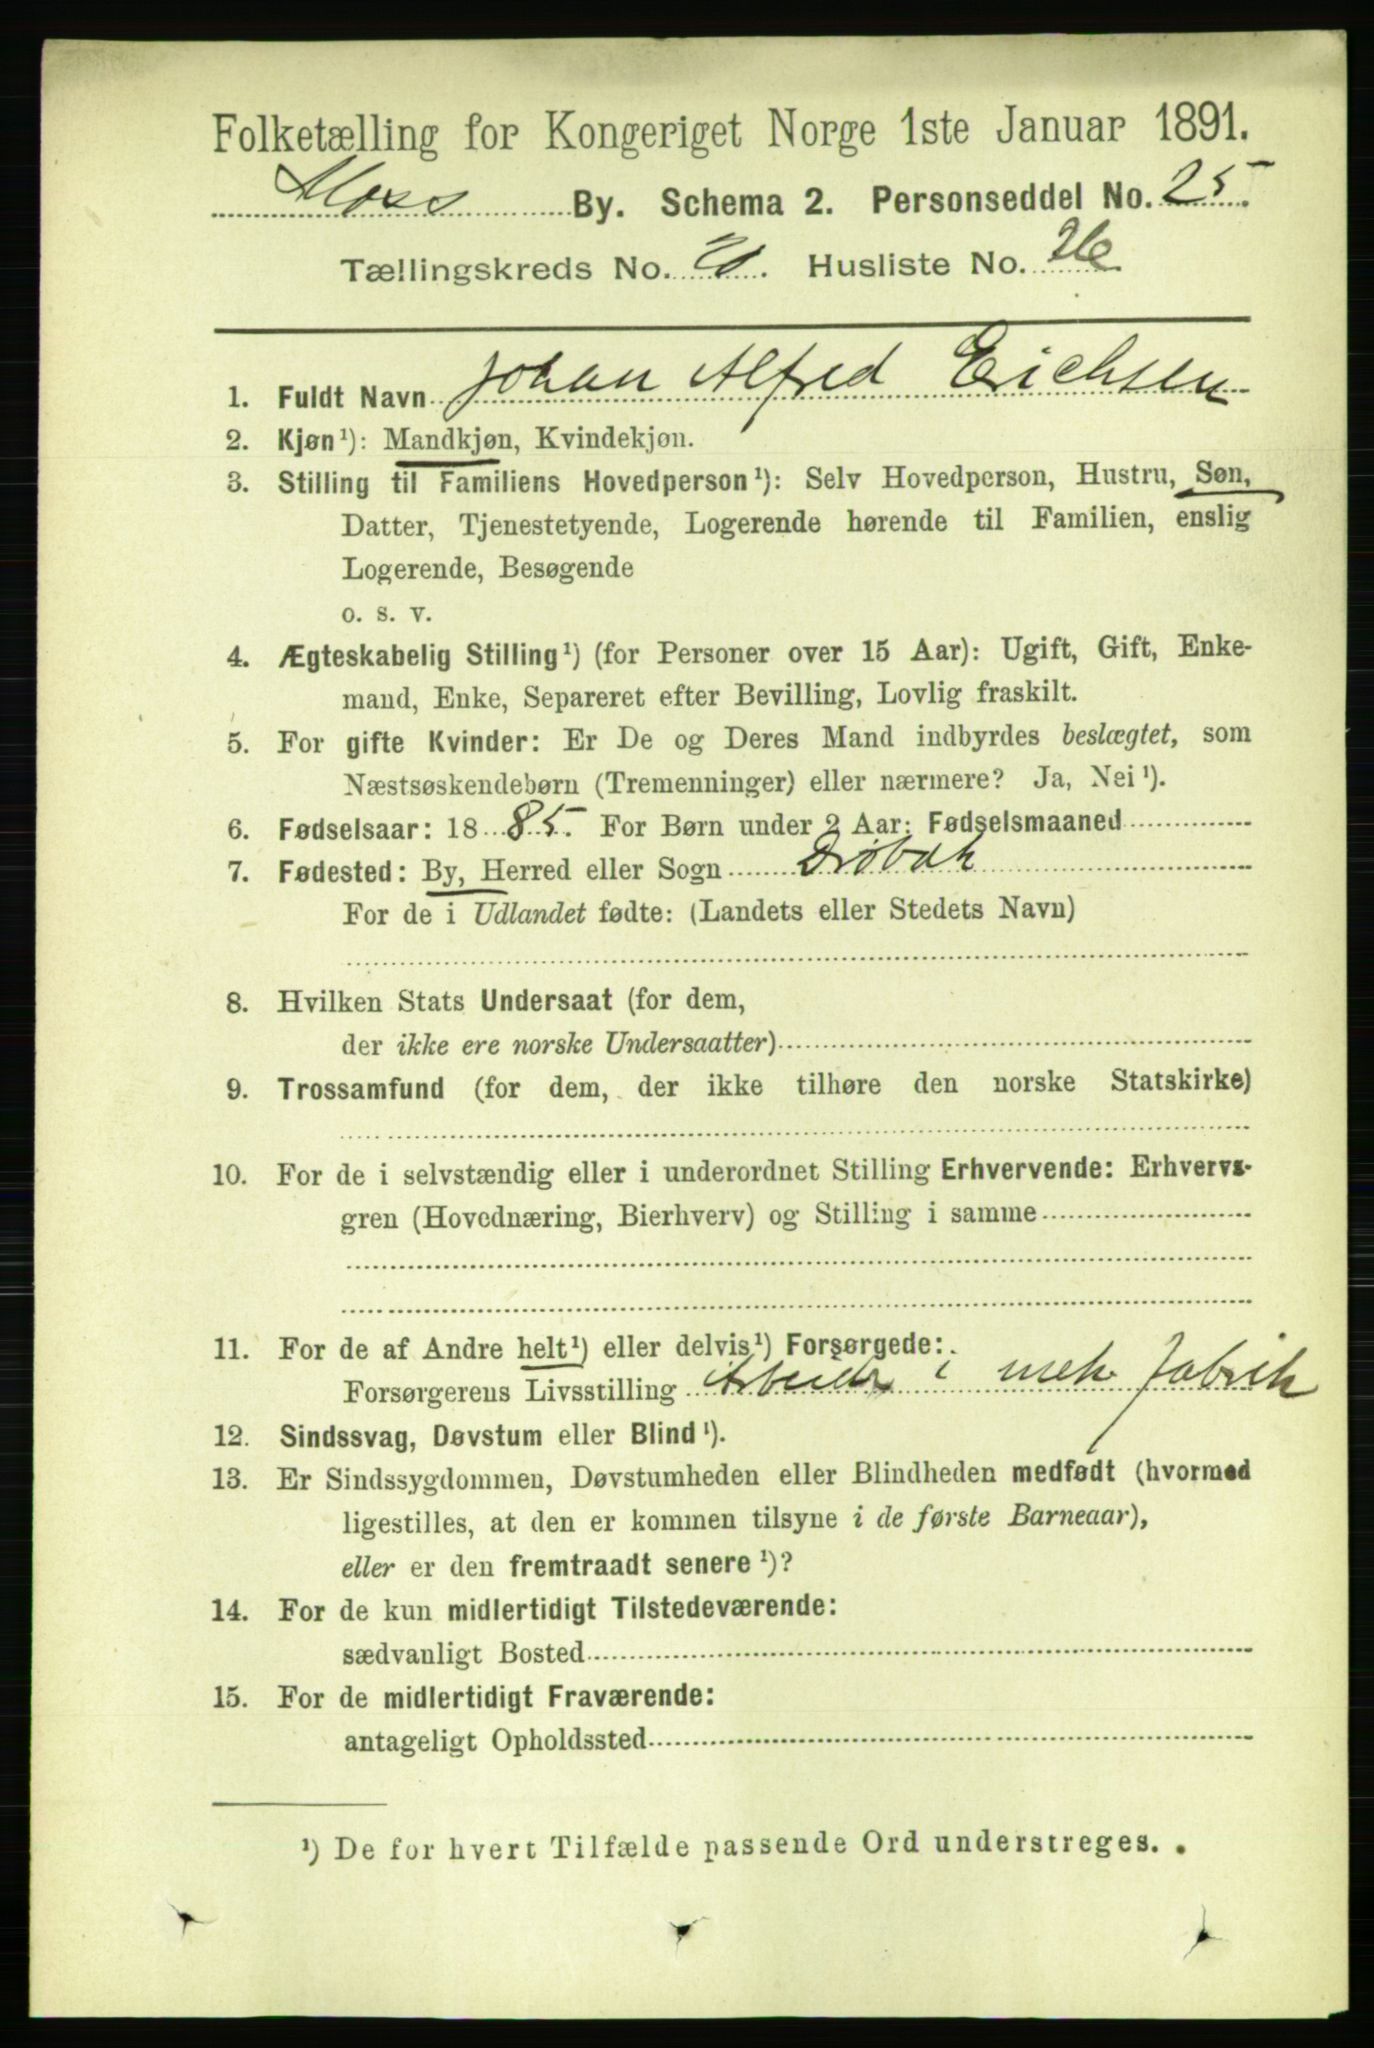 Folketælling for Kongeriget Norge 1ste Januar 1891.
Moss By. Schema 2. Personseddel No. 25.
Tællingskreds No. . Husliste No. 26
1. Fuldt Navn Johan Alfred Erichsen
2. Kjøn¹): Mandkjøn, Kvindekjøn.
3. Stilling til Familiens Hovedperson¹): Selv Hovedperson, Hustru, Søn,
Datter, Tjenestetyende, Logerende hørende til Familien, enslig
Logerende, Besøgende
o. s. v.
4. Ægteskabelig Stilling¹) (for Personer over 15 Aar): Ugift, Gift, Enke-
mand, Enke, Separeret efter Bevilling, Lovlig fraskilt.
5. For gifte Kvinder: Er De og Deres Mand indbyrdes beslægtet, som
Næstsøskendebørn (Tremenninger) eller nærmere? Ja, Nei¹).
6. Fødselsaar: 1885. For Børn under 2 Aar: Fødselsmaaned
7. Fødested: By, Herred eller Sogn Drøbak
For de i Udlandet fødte: (Landets eller Stedets Navn)
8. Hvilken Stats Undersaat (for dem,
der ikke ere norske Undersaatter)
9. Trossamfund (for dem, der ikke tilhøre den norske Statskirke)
10. For de i selvstændig eller i underordnet Stilling Erhvervende: Erhvervs-
gren (Hovednæring, Bierhverv) og Stilling i samme
11. For de af Andre helt¹) eller delvis¹) Forsørgede:
Forsørgerens Livsstilling Arbeider i mek Fabrik
12. Sindssvag, Døvstum eller Blind¹).
13. Er Sindssygdommen, Døvstumheden eller Blindheden medfødt (hvormed
ligestilles, at den er kommen tilsyne i de første Barneaar),
eller er den fremtraadt senere¹)?
14. For de kun midlertidigt Tilstedeværende:
sædvanligt Bosted
15. For de midlertidigt Fraværende:
antageligt Opholdssted
¹) De for hvert Tilfælde passende Ord understreges.